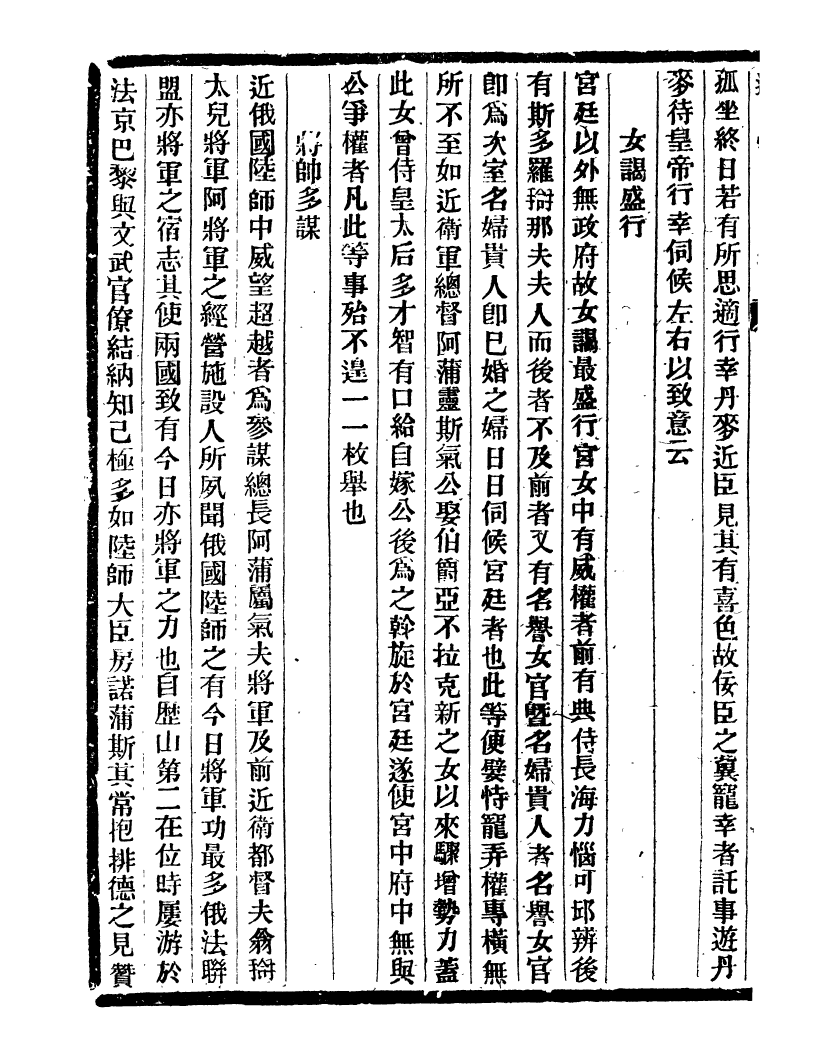 孤坐終日若有所思適行幸丹麥近臣見其有喜色故佞臣之冀寵幸者託事遊丹
麥待皇帝行幸伺候左右以致意云
女謁盛行
宮廷以外無政府故女謁最盛行宮女中有威權者前有典侍長海力惱可邱辨後
有斯多羅𤥭那夫夫人而後者不及前者又有名譽女官曁名婦貴人者名譽女官
卽爲次室名婦貴人卽已婚之婦日日伺候宮廷者也此等便嬖恃寵弄權專橫無
所不至如近衞軍總督阿蒲靈斯氣公娶伯爵亞不拉克新之女以來驟增勢力蓋
此女曾侍皇太后多才智有口給自嫁公後爲之斡旋於宮廷遂使宮中府中無與
公爭權者凡此等事殆不遑一一枚舉也
將帥多謀
近俄國陸師中威望超越者爲參謀總長阿蒲屬氣夫將軍及前近衞都督夫翁𤥭
太兒將軍阿將軍之經營施設人所夙聞俄國陸師之有今日將軍功最多俄法聯
盟亦將軍之宿志其使兩國致有今日亦將軍之力也自歷山第二在位時屢游於
法京巴黎與文武官僚結納知己極多如陸師大臣房諾蒲斯其常抱排德之見贊